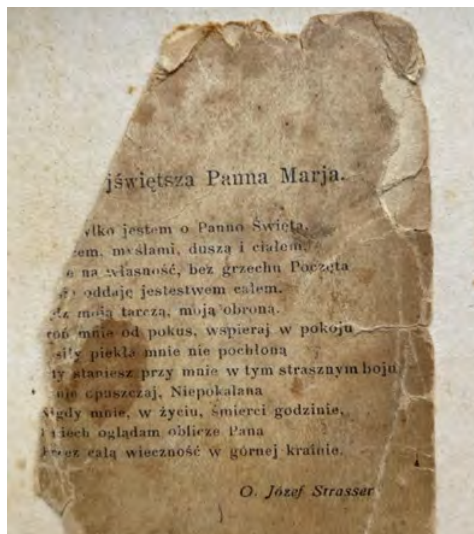 jświętsza Panna Marja.
tylko jestem o Panno Święta,
cem, myślami, duszą i ciałem,
na własność, bez grzechu Poczęta
oddaję jestestwem całem.
moją tarczą, moją obroną.
mnie od pokus, wspieraj w pokoju
siły piekła mnie nie pochłoną
ty staniesz przy mnie w tym strasznym boju
nie opuszczaj, Niepokalana
Nigdy mnie, w życiu, śmierci godzinie,
Niech oglądam oblicze Pana
Przez całą wieczność w górnej krainie.
O. Józef Strasser